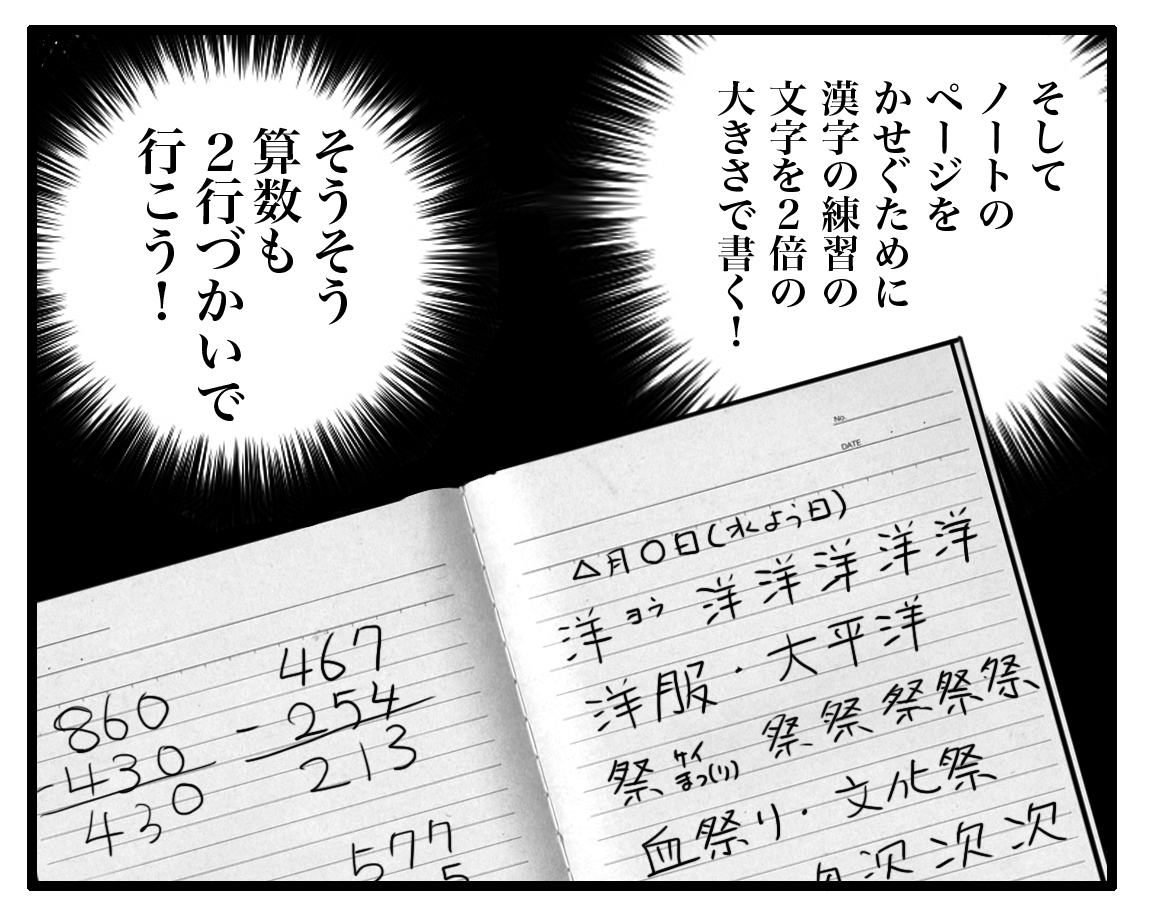 そして
ノートの
ページを
かせぐために
漢字の練習の
文字を2倍の
大きさで書く!
そうそう
算数も
2行づかいで
行こう!
No.
DATE
△月〇日(水よう日)
洋 ヨウ 洋 洋 洋 洋 洋
洋服・大平洋
祭 ケイ まつ(り) 祭 祭 祭 祭 祭
血祭り・文化祭
次 次 次
467
-254
213
860
-430
430
577
5